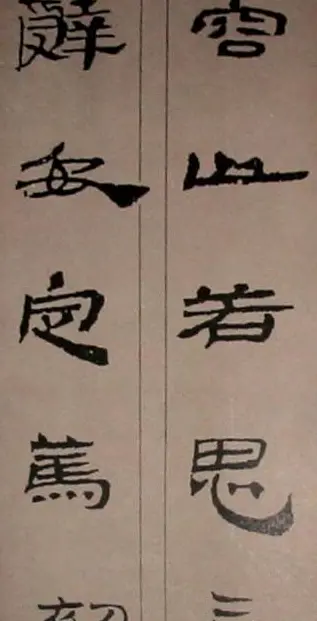 容止若思
辭安定篤初